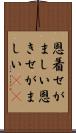 恩着せが
ましい恩
きせがま
しい((